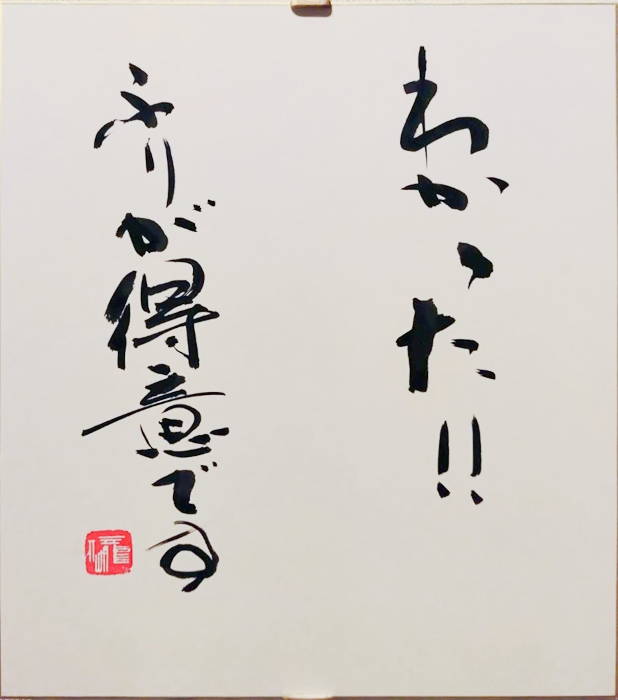 わかった!!
ふりが得意です